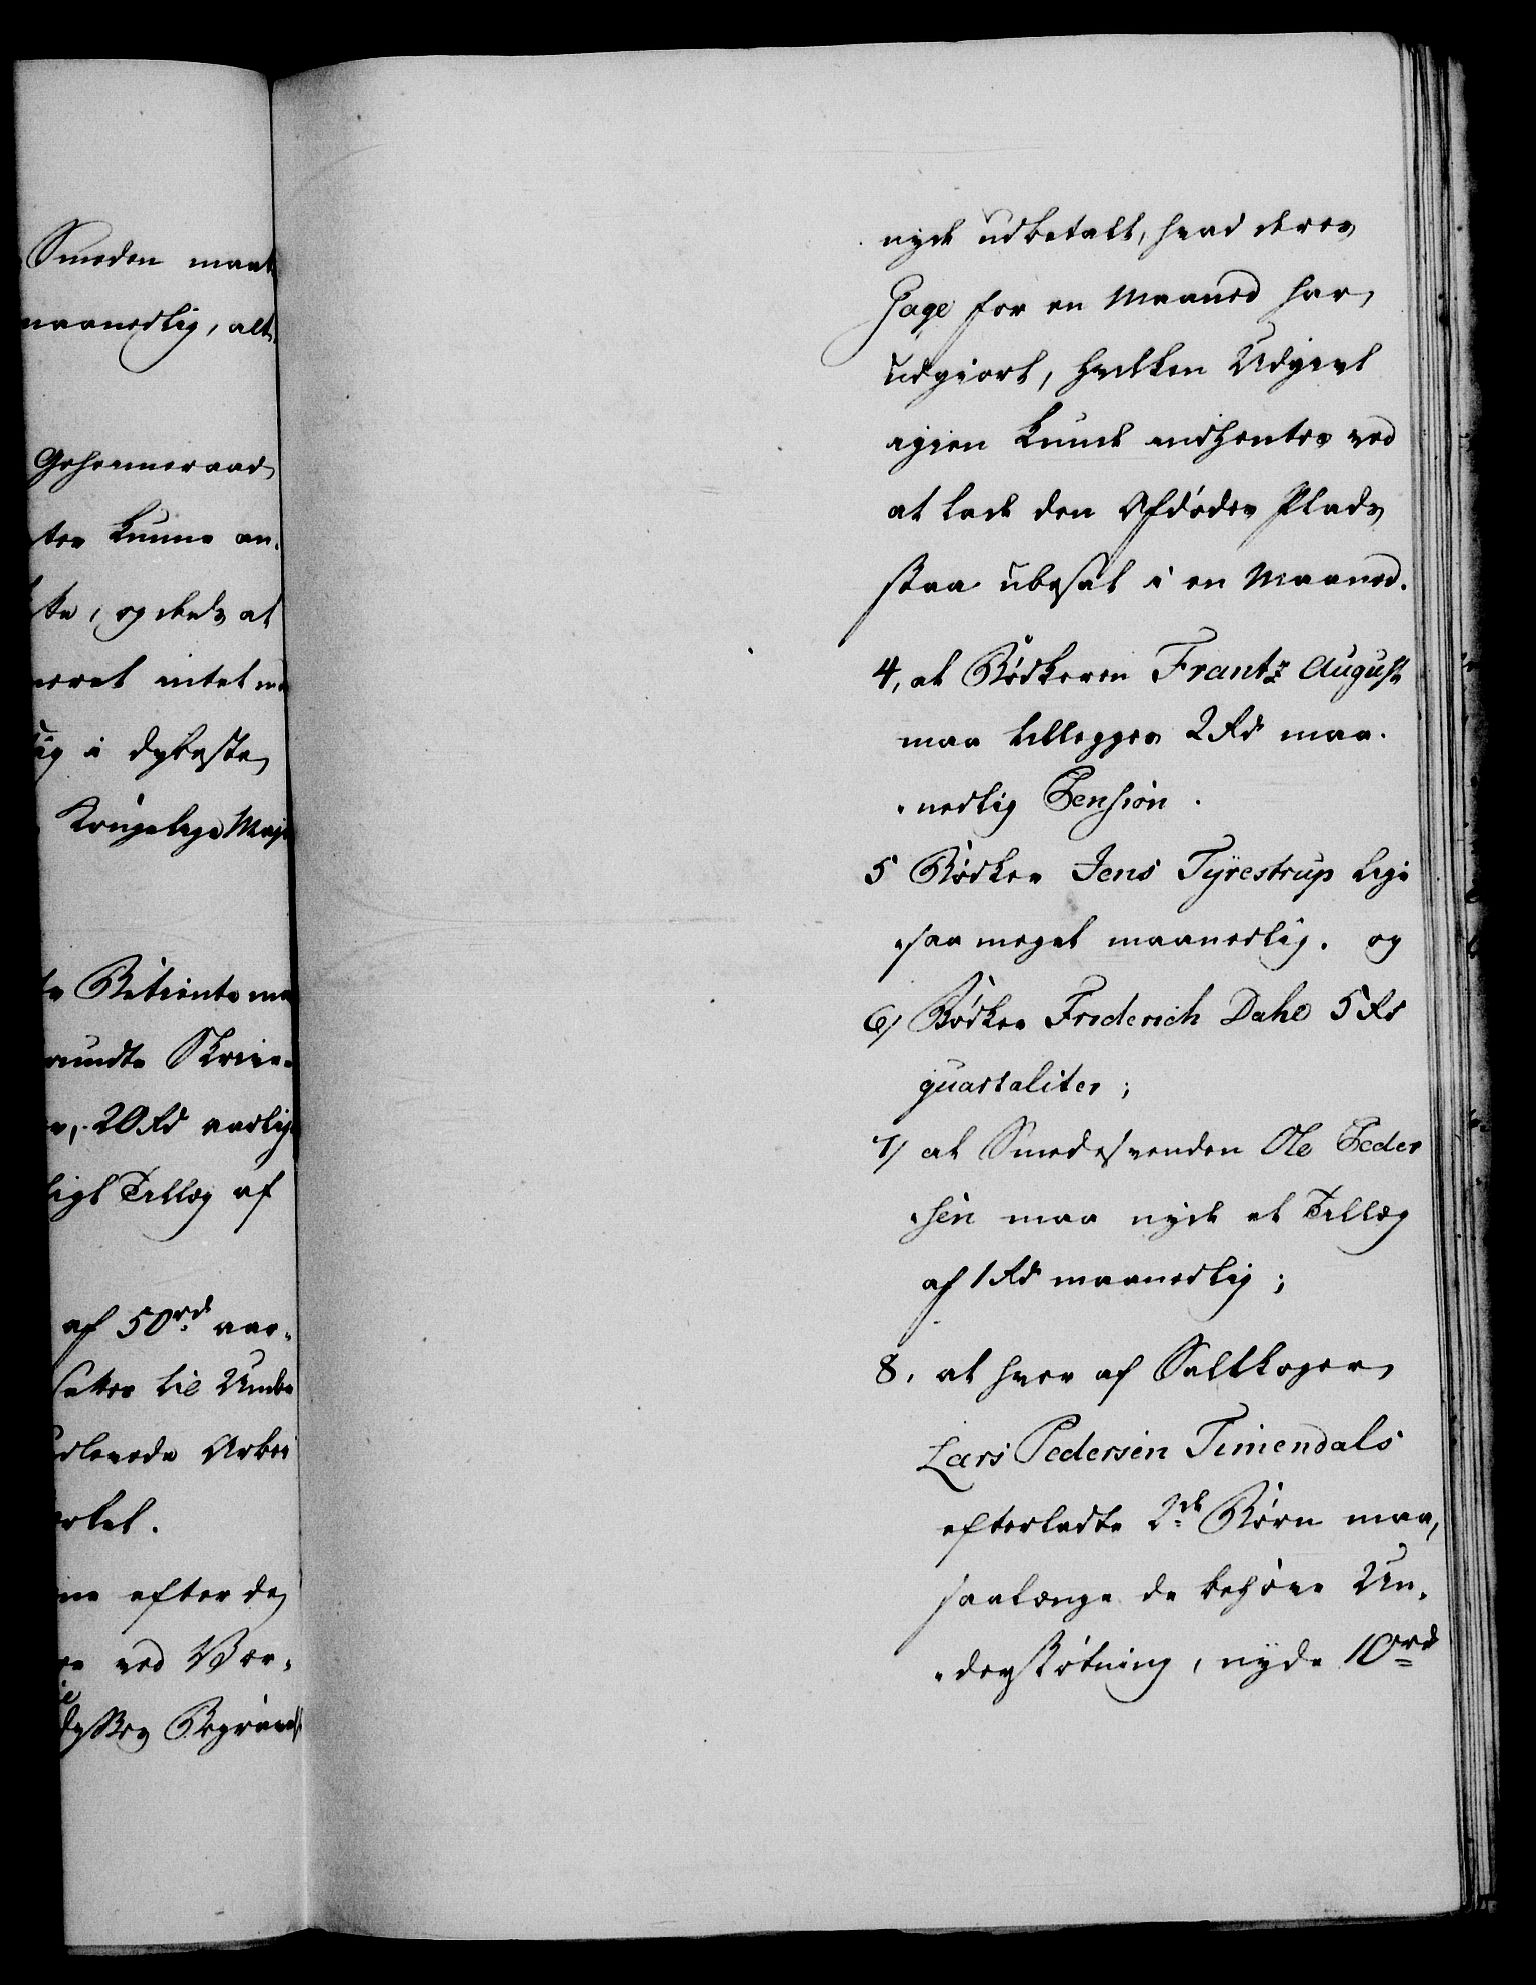 Smeden maat
maanedlig, alt
Geheimeraad
ter kunne an-
og deels at
intet
i dybeste
Kongelige Maj
Betiente
Skrive-
20 Rd aarlig
Tillæg af
af 50 rd aar-
til Under
Arbei
efter de
ved Vær-
nyde udbetalt, hvad deres
Gage for en Maaned har
udgiort, hvilken Udgivt
igien kunde indhentes ved
at lade den Afdødes Plads
staa ubesat i en Maaned.
4, at Bødkeren Frantz August
maa tillegges 2 Rd maa-
nedlig Pension.
5 Bødker Jens Tyrestrup lige
saa meget maanedlig. og
6/ Bødker Friderich Dahl 5 Rd
quartaliter;
7/ at Smedesvenden Ole Peder
sen maa nyde et Tillæg
af 1 Rd maanedlig;
8, at hver af Saltkoger
Lars Pedersen Timendals
efterladte 2de Børn maa,
saalænge de behøve Un-
derstøtning, nyde 10 rd